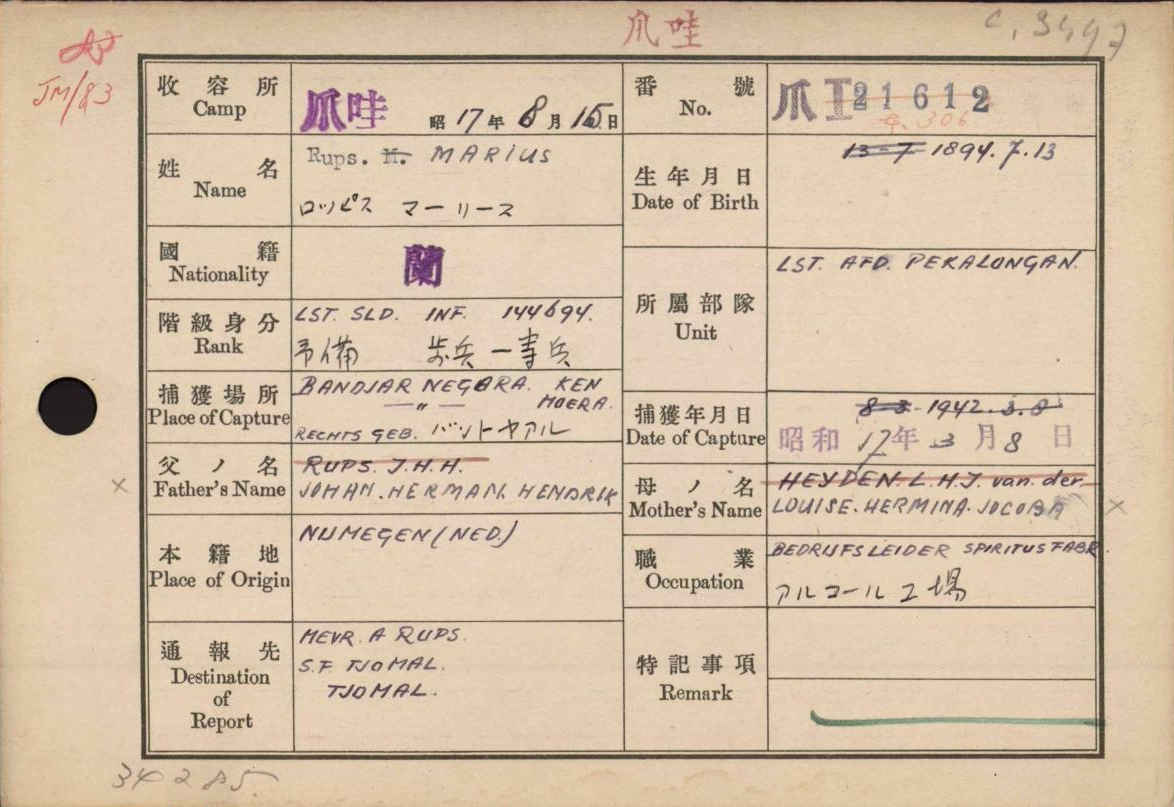 爪哇
C. 3497
JM/83
收容所
Camp
爪哇 昭17年8月15日
番號
No.
爪I 21612
姓名
Name
Rups. M. MARIUS
ロッピス マーリース
生年月日
Date of Birth
13-7 1894.7.13
國籍
Nationality
蘭
所屬部隊
Unit
LST. AFD. PEKALONGAN.
階級身分
Rank
LST. SLD. INF. 144694.
予備 歩兵一等兵
捕獲場所
Place of Capture
BANDJAR NEGARA. KEN
— " — MOERA.
RECHTS GEB. バットヤアル
捕獲年月日
Date of Capture
8-3- 1942.3.8
昭和17年3月8日
父ノ名
Father's Name
RUPS. J.H.H.
JOHAN. HERMAN. HENDRIK
×
母ノ名
Mother's Name
HEYDEN L.H.J. van. der.
LOUISE. HERMINA. JOCOBA
×
本籍地
Place of Origin
NIJMEGEN (NED.)
職業
Occupation
BEDRIJFSLEIDER SPIRITUS FABR.
アルコール工場
通報先
Destination
of
Report
MEVR. A RUPS.
S.F. TJOMAL.
TJOMAL.
特記事項
Remark
34285